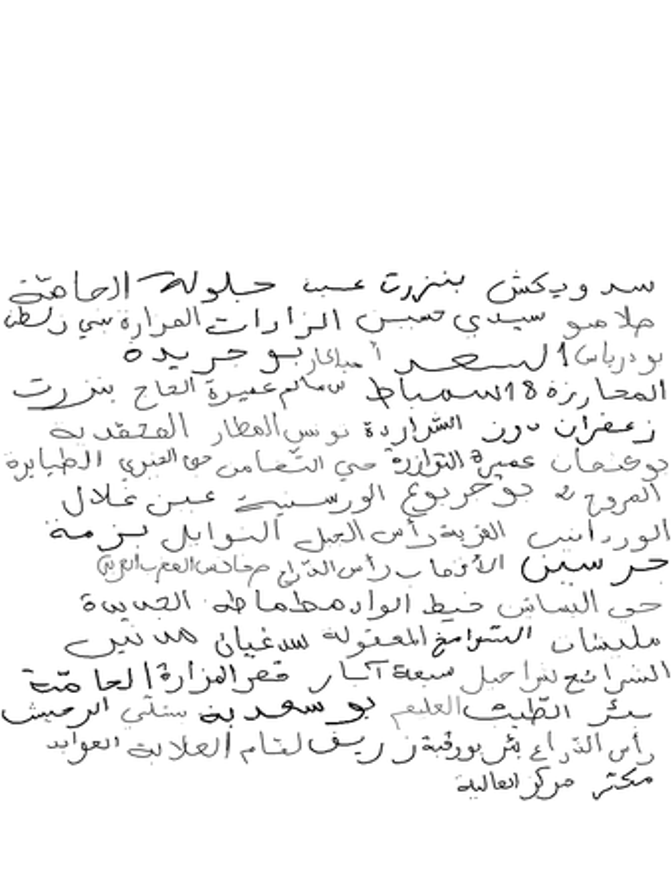 سد ويكش بنزرت عين جلولة الحامّة
صلامبو سيدي حسين الزارات المزارة
بودرياس 1 لسعد بو جريده
المحارزة 18 سمباط سالم عميرة الحاج بنزرت
زعفران دوز الشراردة تونس المطار المتقدية
بوعنجان عميرة التوازرة حي التّضامن حي العنبري الطيايرة
المروج 2 بوجربوع الورسنية عين غلال
الوردانين القرية رأس الجبل النوايل بزمة
جرسين رأس الذراع
حي البساتين خيط الواد مطماطة الجديدة
مليتان الشرايع المعقولة سد غيان مدنين
الشرائع شراحيل سبعة آبار قصر المزارة الحامّة
بئر الطّيب العليم بو سعدية ستني
رأس الذراع بئر بورقبة زريف لتام العلاية العوابد
مكثر مركز العالية